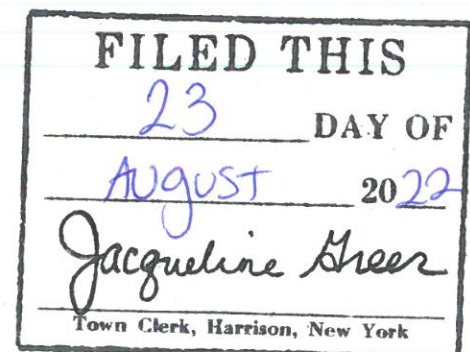 FILED THIS
23 DAY OF
AUGUST 2022
Jacqueline Greer
Town Clerk, Harrison, New York